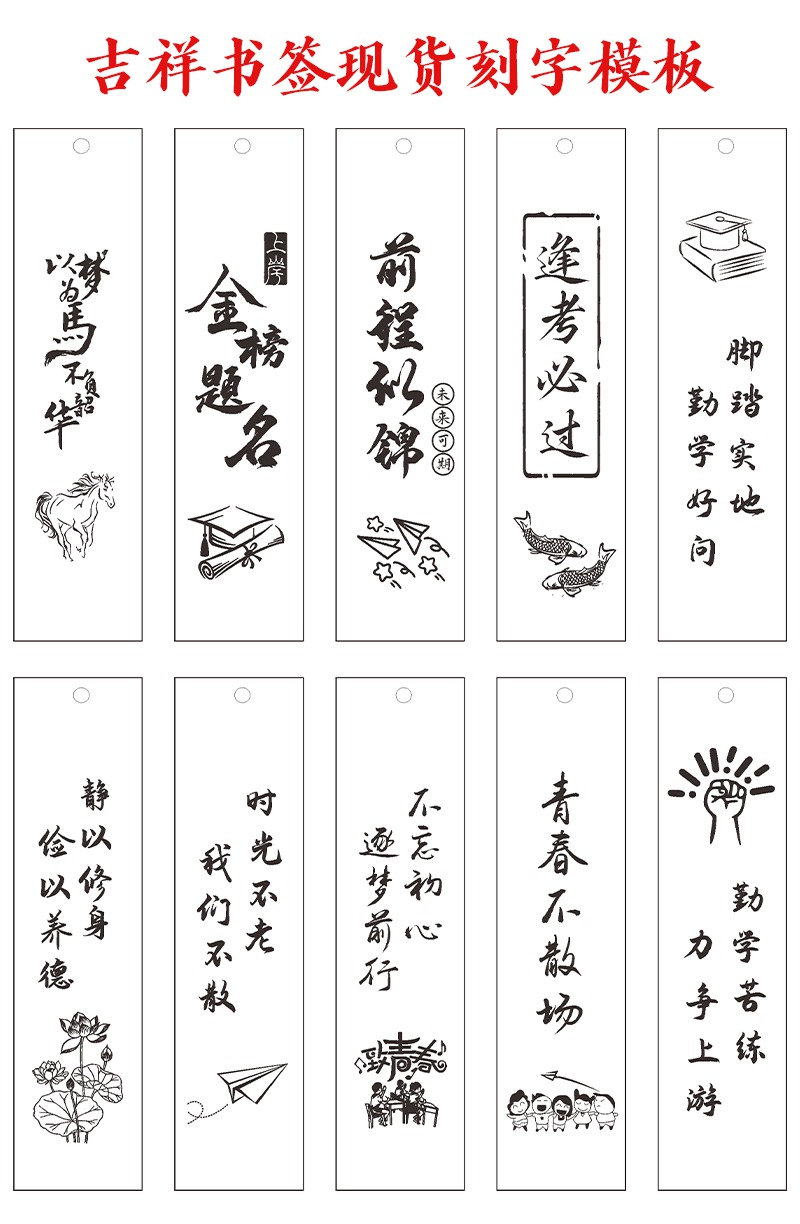 吉祥书签现货刻字模板
以梦为馬
不负韶华
上岸
金榜题名
前程似锦
未来可期
逢考必过
脚踏实地
勤学好问
静以修身
俭以养德
时光不老
我们不散
不忘初心
逐梦前行
致青春
青春不散场
勤学苦练
力争上游